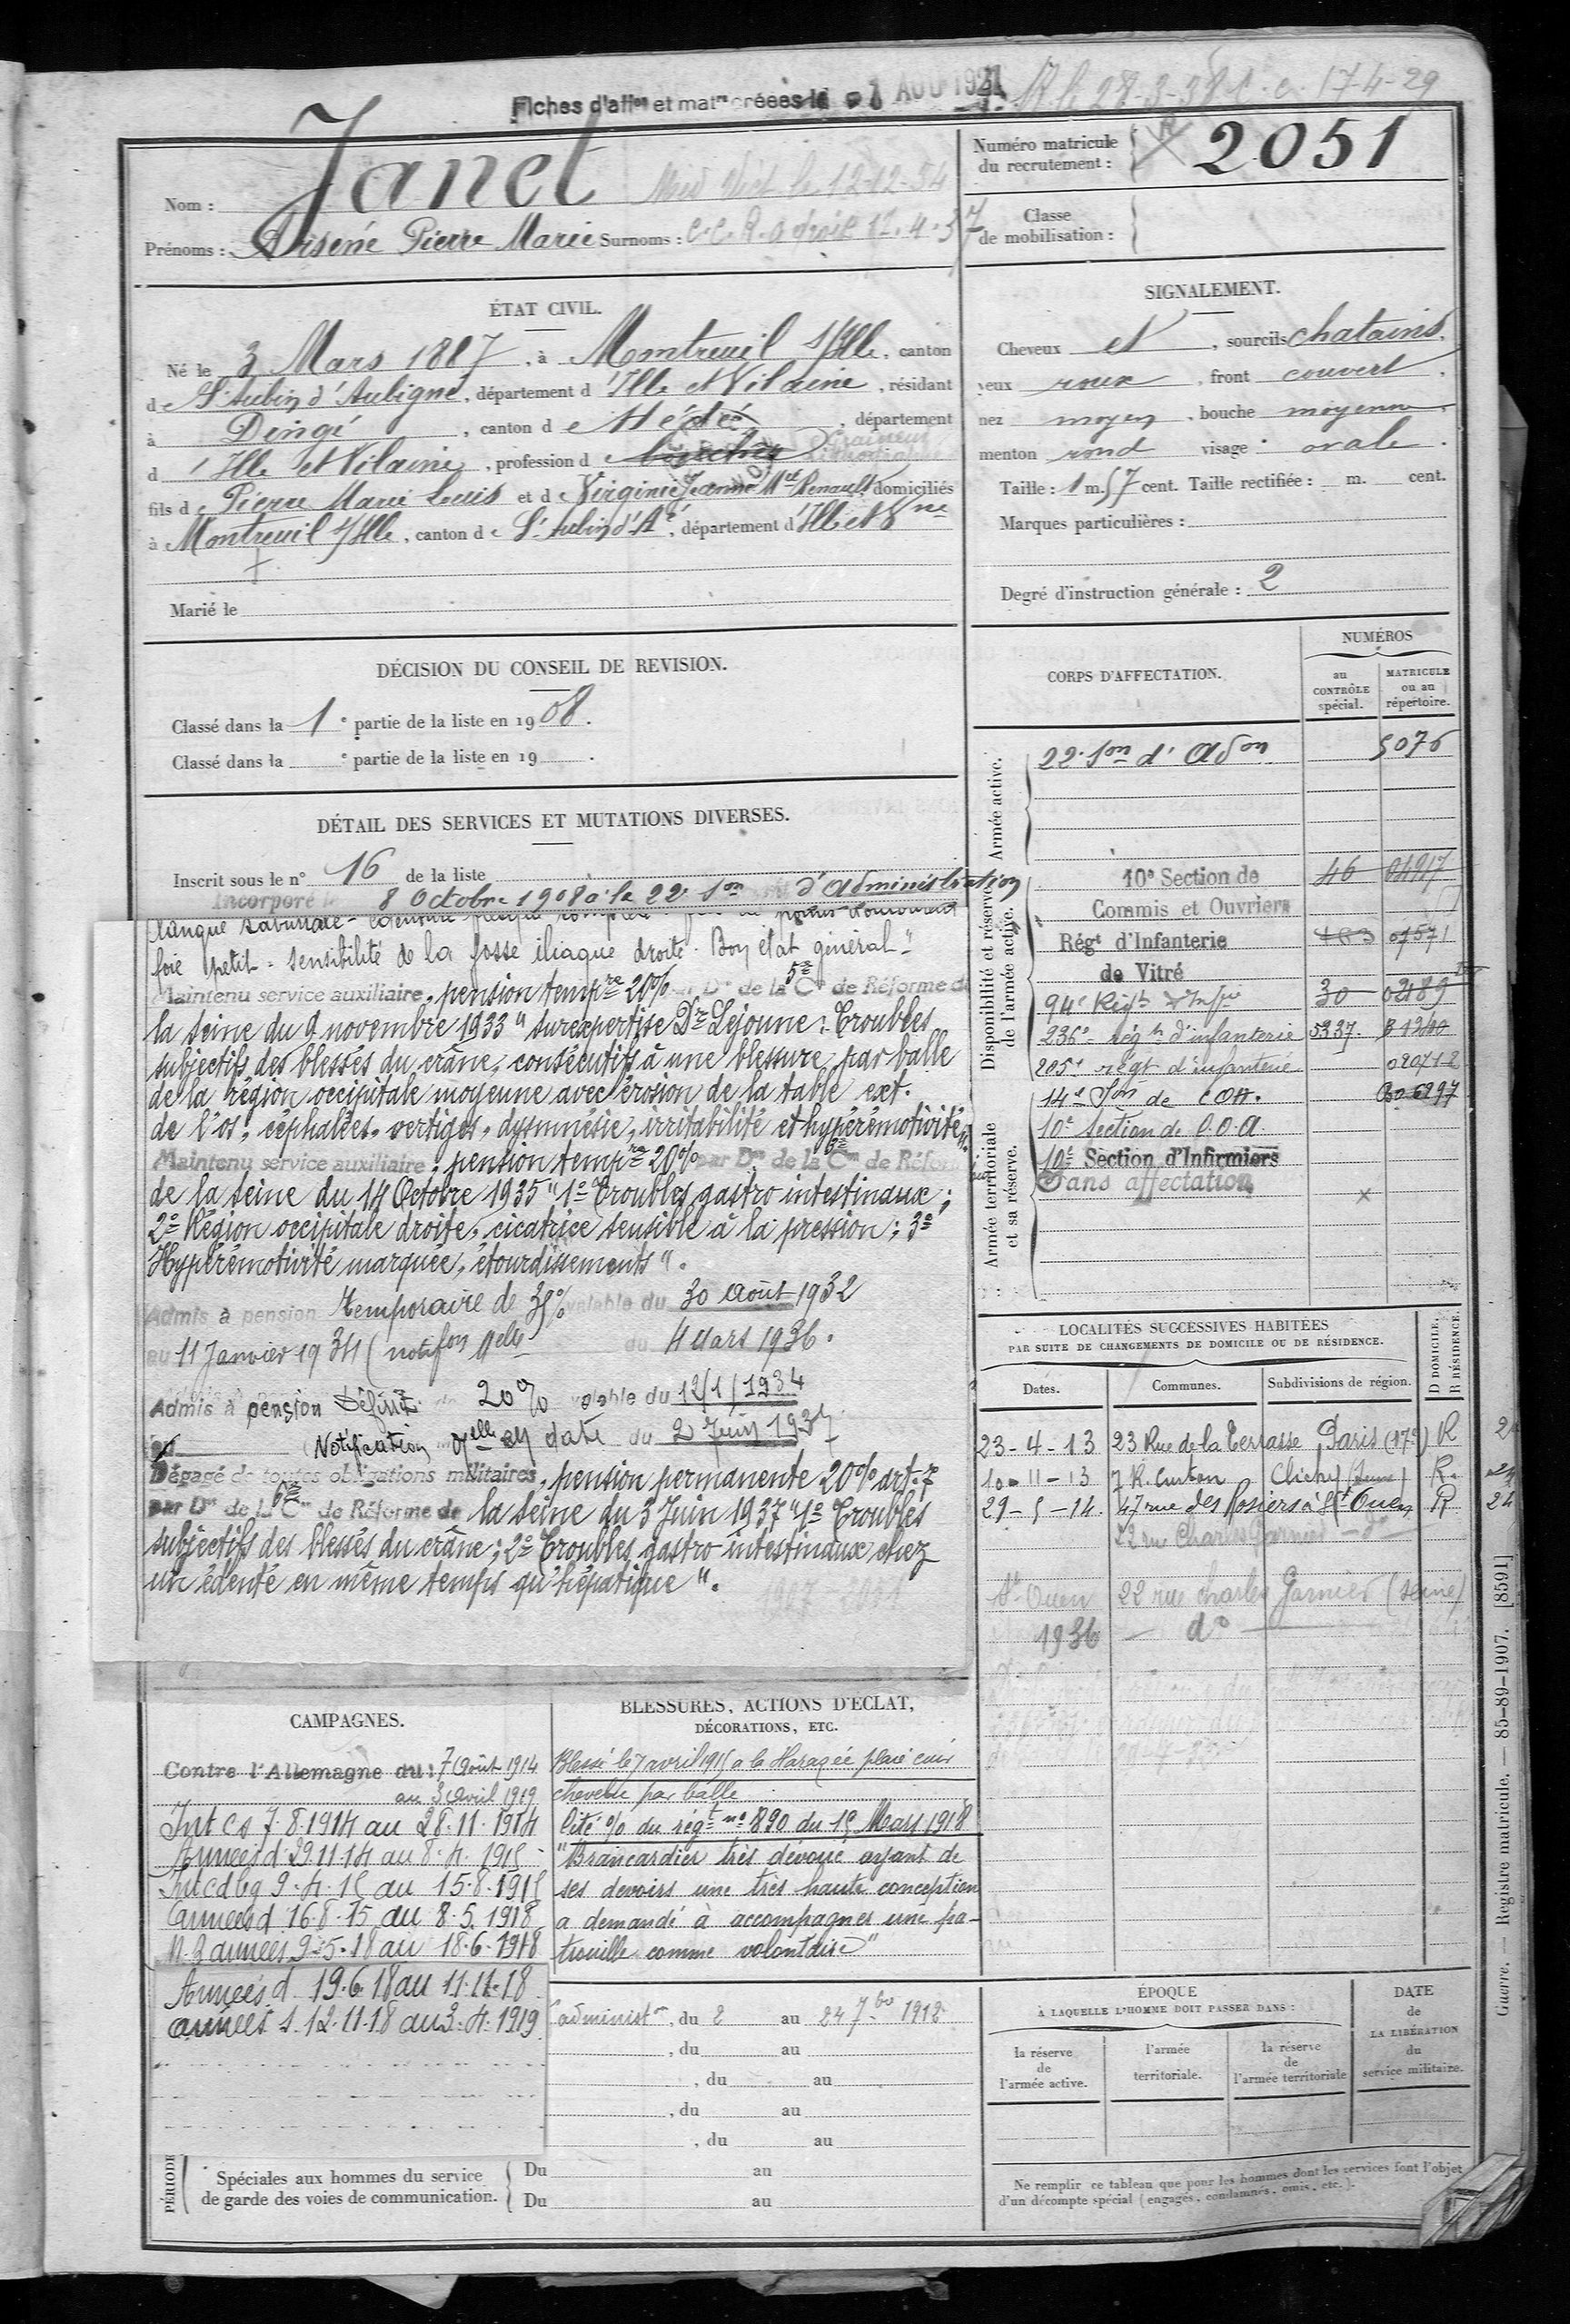 Fiches d'aff^on et mat^re créées le 1 AOU 1921 R le 28-3-38 C.c. 17-4-29
Numéro matricule du recrutement : 2051
Nom : Janet Med Vict le 12-12-54
Prénoms : Arsène Pierre Marie Surnoms : C.C. 12.4.37
Classe de mobilisation :
ÉTAT CIVIL.
Né le 3 Mars 1887, à Montreuil s/Ille, canton
de St Aubin d'Aubigné, département d'Ille et Vilaine, résidant
à Dingé, canton de Hédé, département
d'Ille et Vilaine, profession de
fils de Pierre Marie Louis et de Virginie Jeanne M^ie Renault, domiciliés
à Montreuil s/Ille, canton de St Aubin d'A^é, département d'Ille et V^ne
Marié le
SIGNALEMENT.
Cheveux et, sourcils chatains,
yeux roux, front couvert,
nez moyen, bouche moyenne,
menton rond visage ovale.
Taille : 1 m. 57 cent. Taille rectifiée : m. cent.
Marques particulières :
Degré d'instruction générale : 2
DÉCISION DU CONSEIL DE REVISION.
Classé dans la 1^e partie de la liste en 1908.
Classé dans la ^e partie de la liste en 19 .
DÉTAIL DES SERVICES ET MUTATIONS DIVERSES.
Inscrit sous le n° 16 de la liste
Incorporé le 8 Octobre 1908 à la 22^e S^on d'administration
langue saburrale -
foie petit - sensibilité de la fosse iliaque droite. Bon état général"
Maintenu service auxiliaire, pension temp^re 20% par D^on de la 5^e C^on de Réforme de
la Seine du 9 novembre 1933 "surexpertise D^r Lejonne : Troubles
subjectifs des blessés du crâne, consécutifs à une blessure par balle
de la région occipitale moyenne avec érosion de la table ext.
de l'os, céphalées, vertiges, dysmnésie, irritabilité et hypérémotivité"
Maintenu service auxiliaire, pension temp^re 20% par D^on de la 6^e C^on de Réforme
de la Seine du 14 Octobre 1935 "1° Troubles gastro intestinaux ;
2° Région occipitale droite, cicatrice sensible à la pression ; 3°
Hypérémotivité marquée, étourdissements".
Admis à pension temporaire de 35% valable du 30 Août 1932
au 11 Janvier 1934 (notif^on M^elle du 4 Mars 1936.
Admis à pension Définit. de 20% valable du 12/1/1934
au Notification M^elle en date du 2 Juin 1937
Dégagé de toutes obligations militaires, pension permanente 20% art. 7
par D^on de la 6^e C^on de Réforme de la Seine du 3 Juin 1937 "1° Troubles
subjectifs des blessés du crâne ; 2° Troubles gastro intestinaux chez
un édenté en même temps qu'hépatique".
CORPS D'AFFECTATION.
NUMÉROS
au CONTRÔLE spécial.
MATRICULE ou au répertoire.
Armée active.
22^e S^on d'Ad^on 5076
Disponibilité et réserve de l'armée active.
10^e Section de 46 04917
Commis et Ouvriers
Rég^t d'Infanterie 483 07571
de Vitré
94^e Rég^t d'Inf^ie 30 02189
236^e rég^t d'infanterie 5337. B 1240
225^e régt d'infanterie 020712
Armée territoriale et sa réserve.
14^e S^on de COA. 6297
10^e Section de C.O.A.
10^e Section d'Infirmiers
Sans affectation
LOCALITÉS SUCCESSIVES HABITÉES
PAR SUITE DE CHANGEMENTS DE DOMICILE OU DE RÉSIDENCE.
Dates. Communes. Subdivisions de région. D DOMICILE. R RÉSIDENCE.
23-4-13 23 Rue de la Terrasse Paris (17^e) R
10-11-13 7 R. Curton Clichy (Seine) R.
29-5-14. 47 rue des Rosiers à St Ouen R 24
22 rue Charles Garnier - d°
St Ouen 22 rue Charles Garnier (Seine)
1936 - d°
CAMPAGNES.
Contre l'Allemagne du : 7 Août 1914
au 3 Avril 1919
Int Cs 7.8.1914 au 28.11.1914
Armées d. 29 11 14 au 8.4.1915
Int cd bg 9.4.15 au 15.8.1915
armées d 16.8.15 au 8.5.1918
N.B armées 9.5.18 au 18.6.1918
Armées d. 19.6.18 au 11.11.18
armées s. 12.11.18 au 3.4.1919
BLESSURES, ACTIONS D'ÉCLAT,
DÉCORATIONS, ETC.
Blessé le 7 avril 1915 à la Harazée plaie cuir
chevelu par balle
Cité % du rég^t n° 890 du 15 Mars 1918
"Brancardier très dévoué ayant de
ses devoirs une très haute conception
a demandé à accompagner une pa-
trouille comme volontaire"
administ^on, du 2 au 24 7^bre 1912
, du au
, du au
, du au
, du au
PÉRIODE
Spéciales aux hommes du service
de garde des voies de communication.
Du au
Du au
ÉPOQUE
À LAQUELLE L'HOMME DOIT PASSER DANS :
la réserve de l'armée active.
l'armée territoriale.
la réserve de l'armée territoriale
DATE de LA LIBÉRATION du service militaire.
Ne remplir ce tableau que pour les hommes dont les services font l'objet
d'un décompte spécial (engagés, condamnés, omis, etc.).
Guerre. — Registre matricule. — 85-89-1907. [8591]